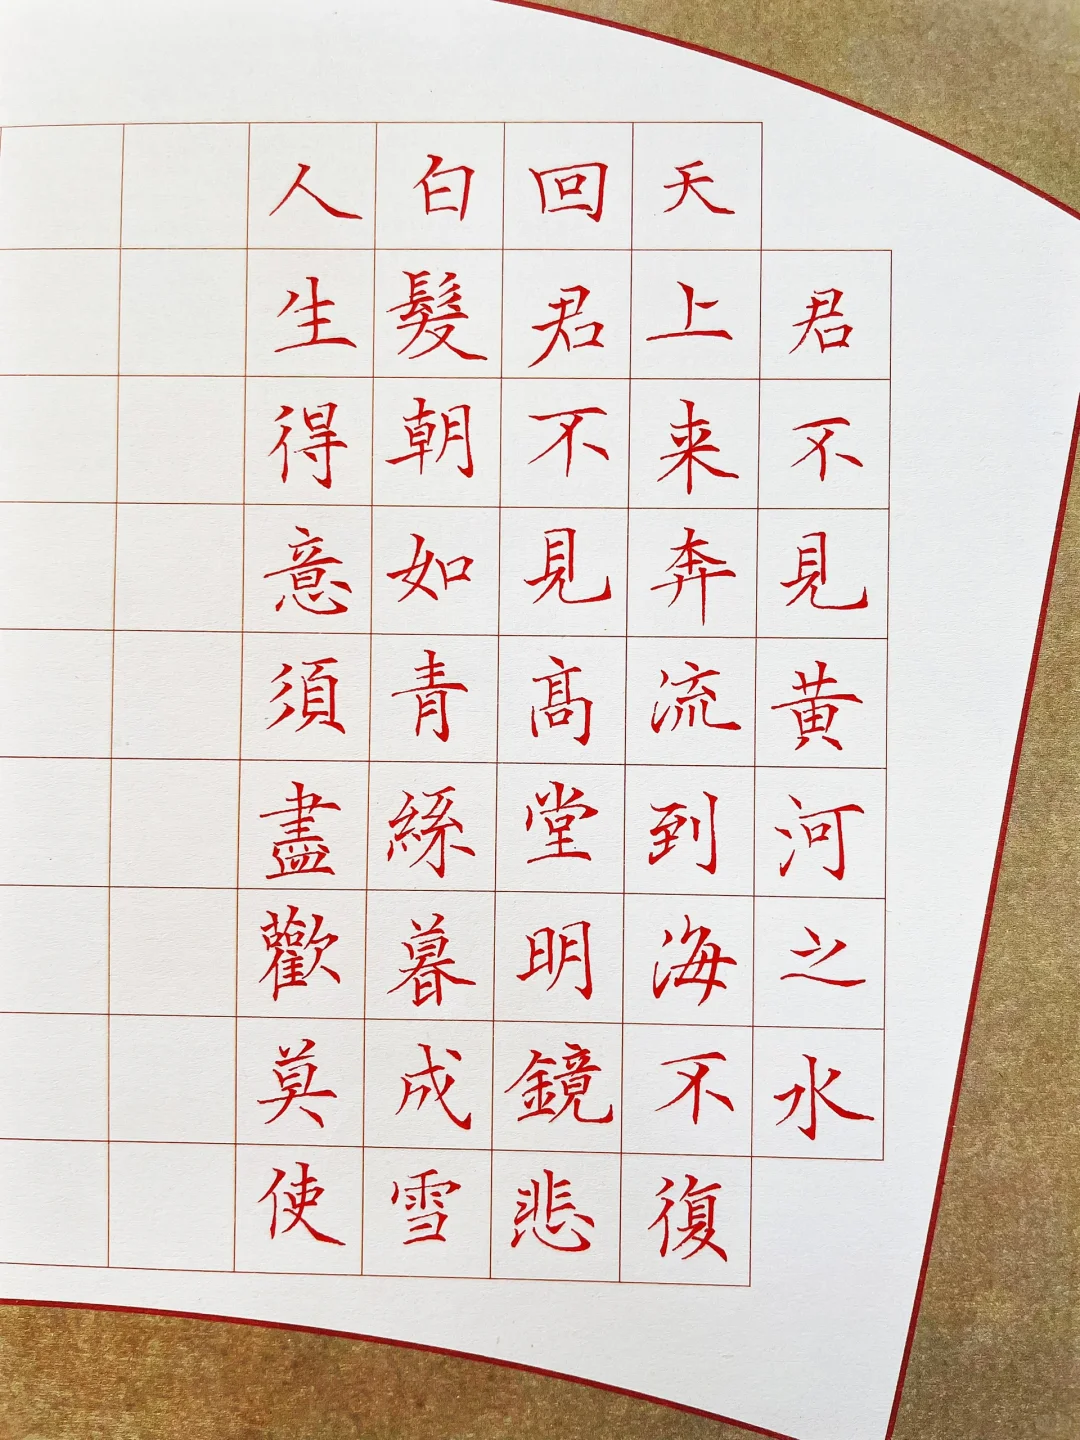 君不見黄河之水
天上来奔流到海不復
回君不見髙堂明鏡悲
白髮朝如青絲暮成雪
人生得意須盡歡莫使